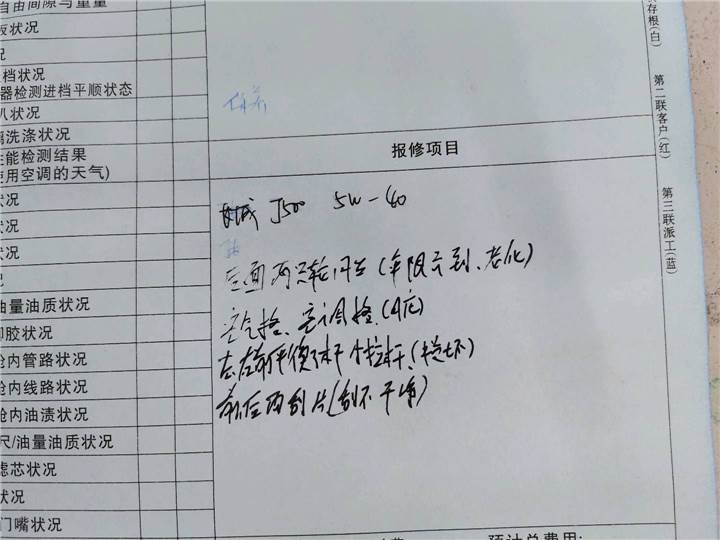 自由间隙与重量
板状况
况
档状况
器检测进档平顺状态
八状况
洗涤状况
性能检测结果
使用空调的天气)
状况
状况
状况
况
油量油质状况
却胶状况
舱内管路状况
舱内线路状况
舱内油渍状况
尺/油量油质状况
滤芯状况
状况
门嘴状况
存根(白)
第二联客户(红)
第三联派工(蓝)
报修项目
J500 5W-40
左面两只轮胎(年限已到、老化)
空气格、空调格、(脏)
左右前平衡杆小拉杆、(松坏)
前后雨刮片(刮不干净)
预计总费用: